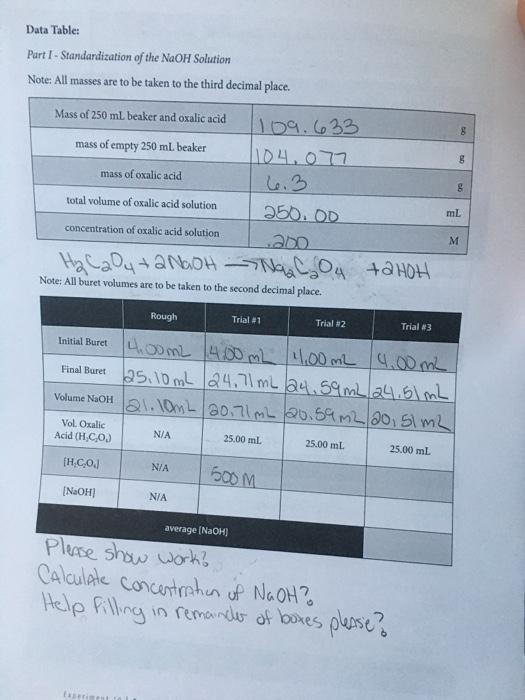 Data Table:
Part I - Standardization of the NaOH Solution
Note: All masses are to be taken to the third decimal place.
Mass of 250 mL beaker and oxalic acid 109.633 g
mass of empty 250 mL beaker 104.077 g
mass of oxalic acid 6.3 g
total volume of oxalic acid solution 250.00 mL
concentration of oxalic acid solution .200 M
H₂C₂O₄ + 2NaOH → Na₂C₂O₄ + 2HOH
Note: All buret volumes are to be taken to the second decimal place.
Rough Trial #1 Trial #2 Trial #3
Initial Buret 4.00mL 4.00 mL 4.00 mL 4.00 mL
Final Buret 25.10 mL 24.71 mL 24.59 mL 24.51 mL
Volume NaOH 21.10mL 20.71 mL 20.59 mL 20.51 mL
Vol. Oxalic
Acid (H₂C₂O₄) N/A 25.00 mL 25.00 mL 25.00 mL
[H₂C₂O₄] N/A 500 M
[NaOH] N/A
average [NaOH]
Please show work?
Calculate concentration of NaOH?
Help filling in remainder of boxes please?